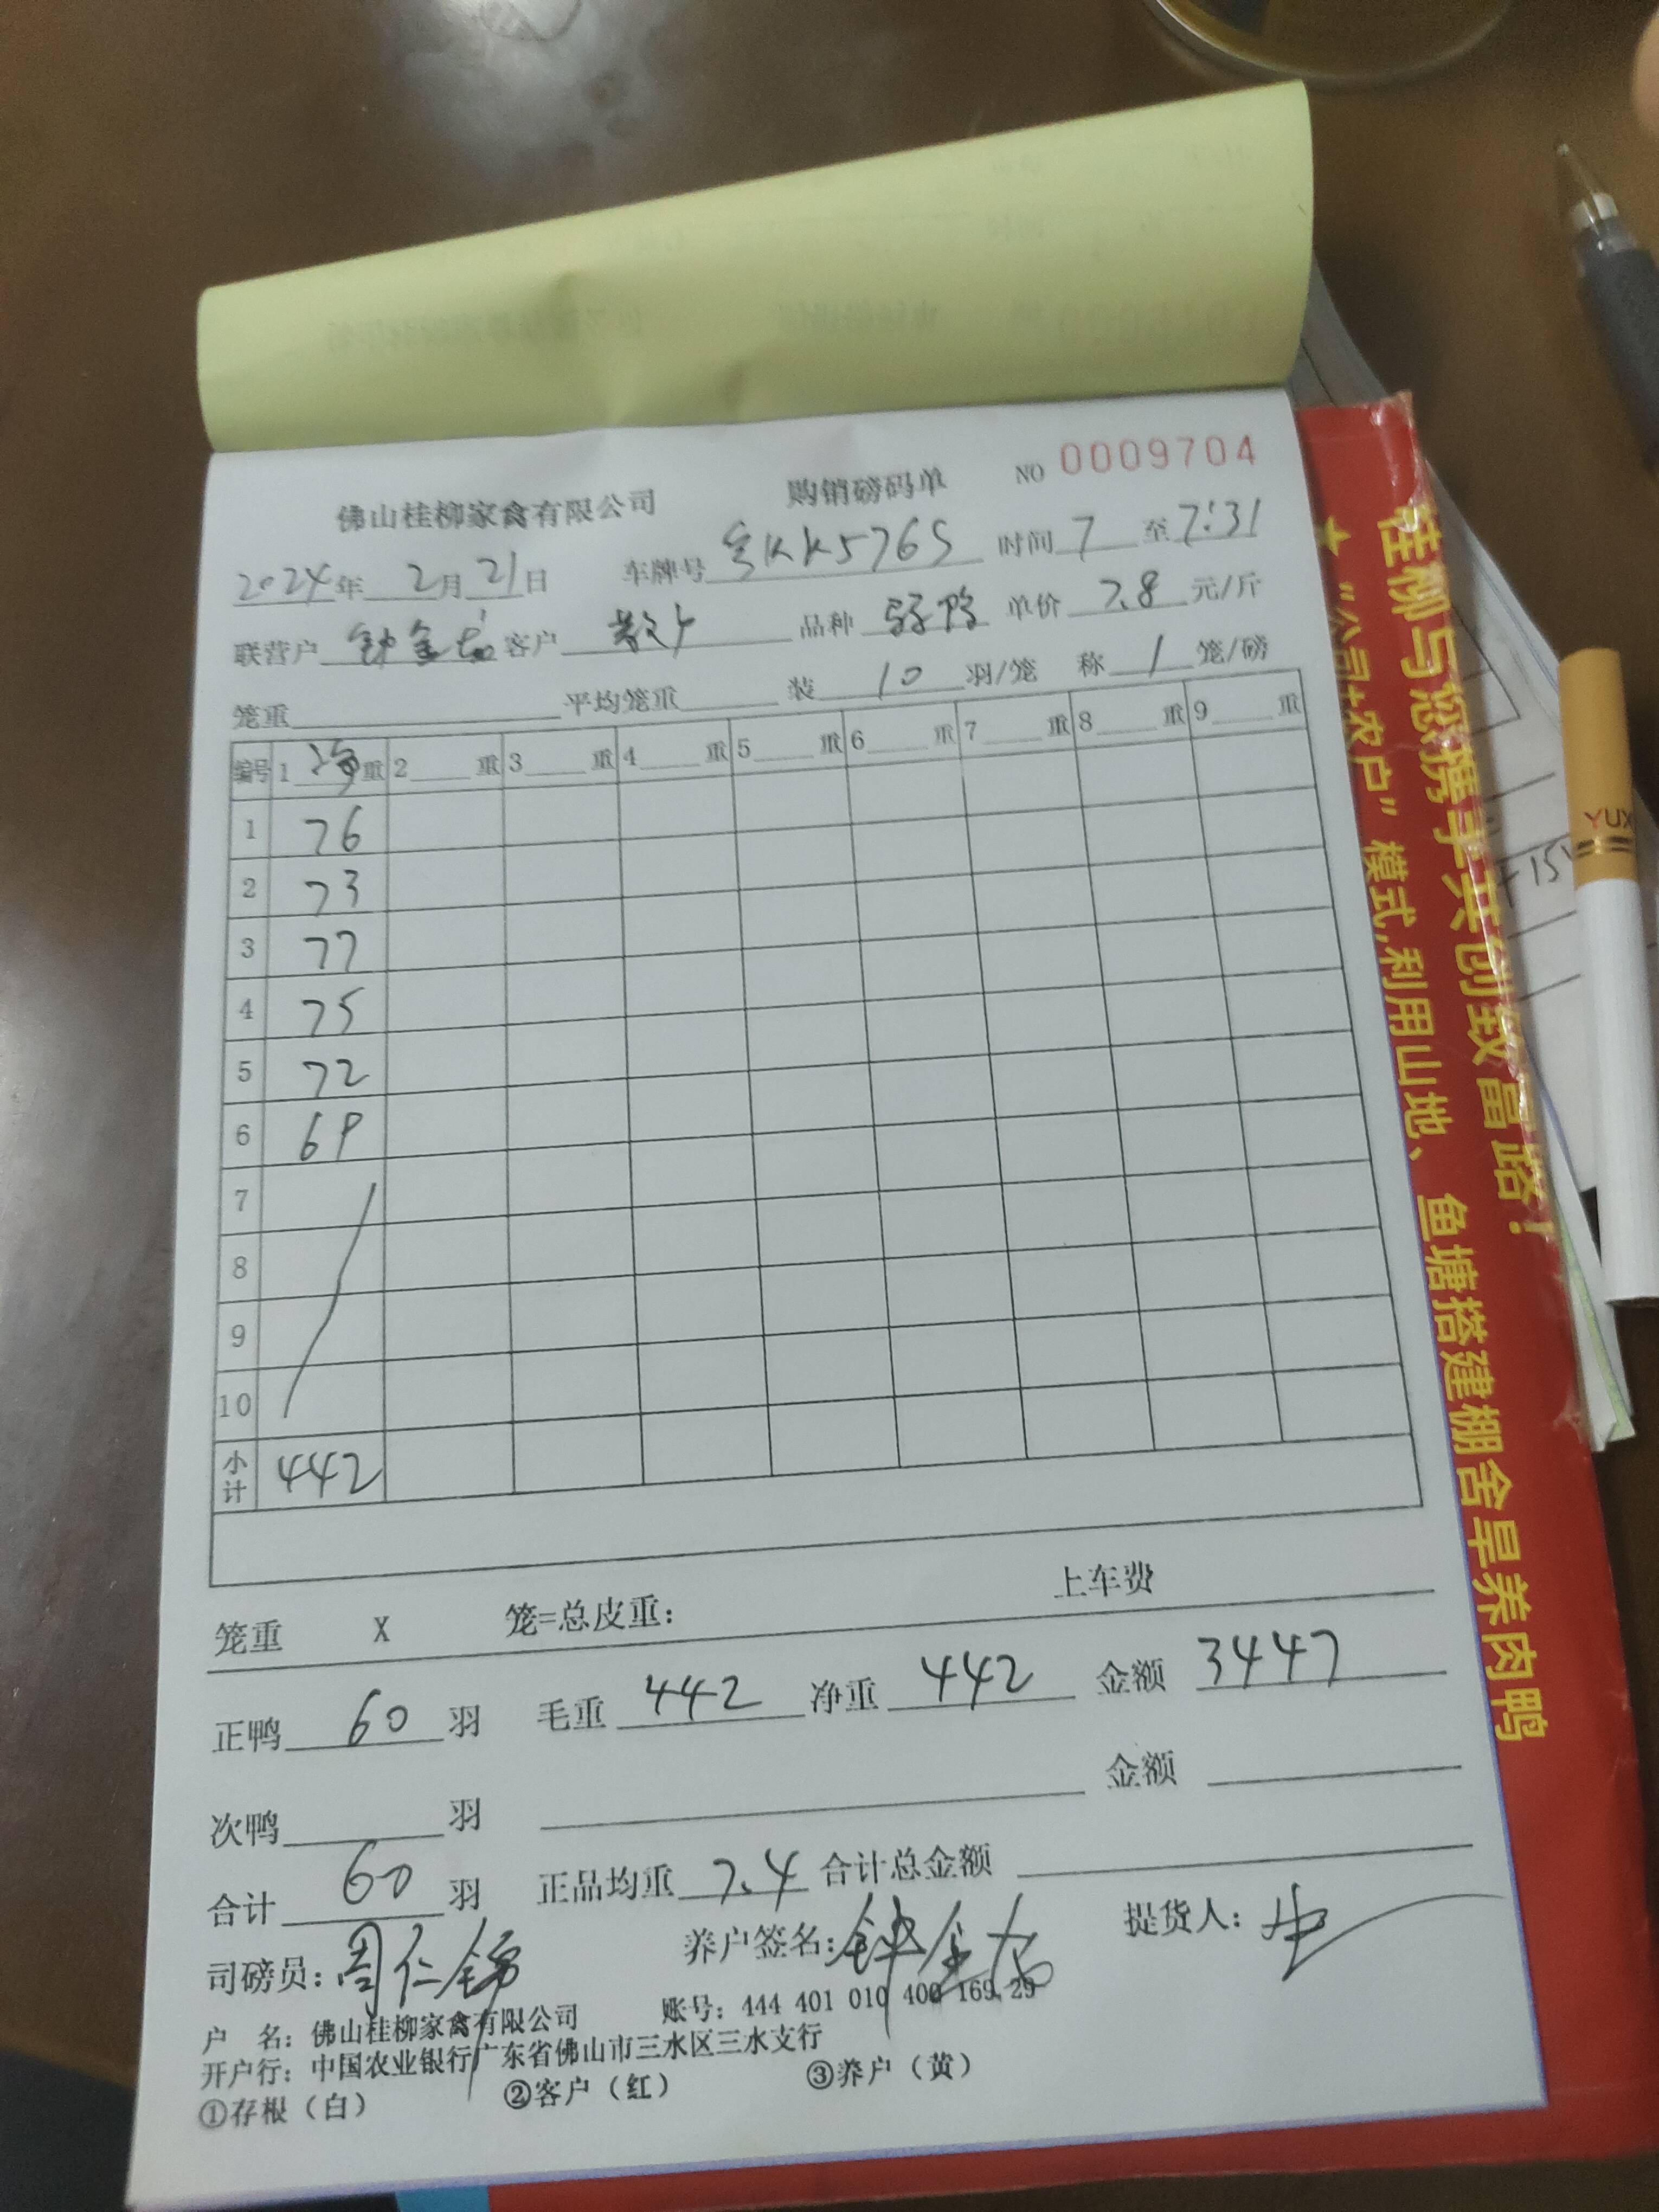 佛山桂柳家禽有限公司 购销磅码单 NO 0009704
2024年 2月21日 车牌号 KK576S 时间 7 至 7:31
联营户 钟金 客户 散户 品种 单价 7.8 元/斤
笼重 平均笼重 装 10 羽/笼 称 1 笼/磅
编号 1 净 重 2 重 3 重 4 重 5 重 6 重 7 重 8 重 9 重
1 76
2 73
3 77
4 75
5 72
6 69
7
8
9
10
小计 442
笼重 X 笼=总皮重: 上车费
正鸭 60 羽 毛重 442 净重 442 金额 3447
次鸭 羽 金额
合计 60 羽 正品均重 7.4 合计总金额
司磅员: 周仁锦 养户签名: 钟金 提货人:
户 名: 佛山桂柳家禽有限公司 账号: 444 401 010 400 169 29
开户行: 中国农业银行广东省佛山市三水区三水支行
①存根（白） ②客户（红） ③养户（黄）
桂柳与您携手共创致富路！
★“公司+农户”模式,利用山地、鱼塘搭建棚舍旱养肉鸭
YUX